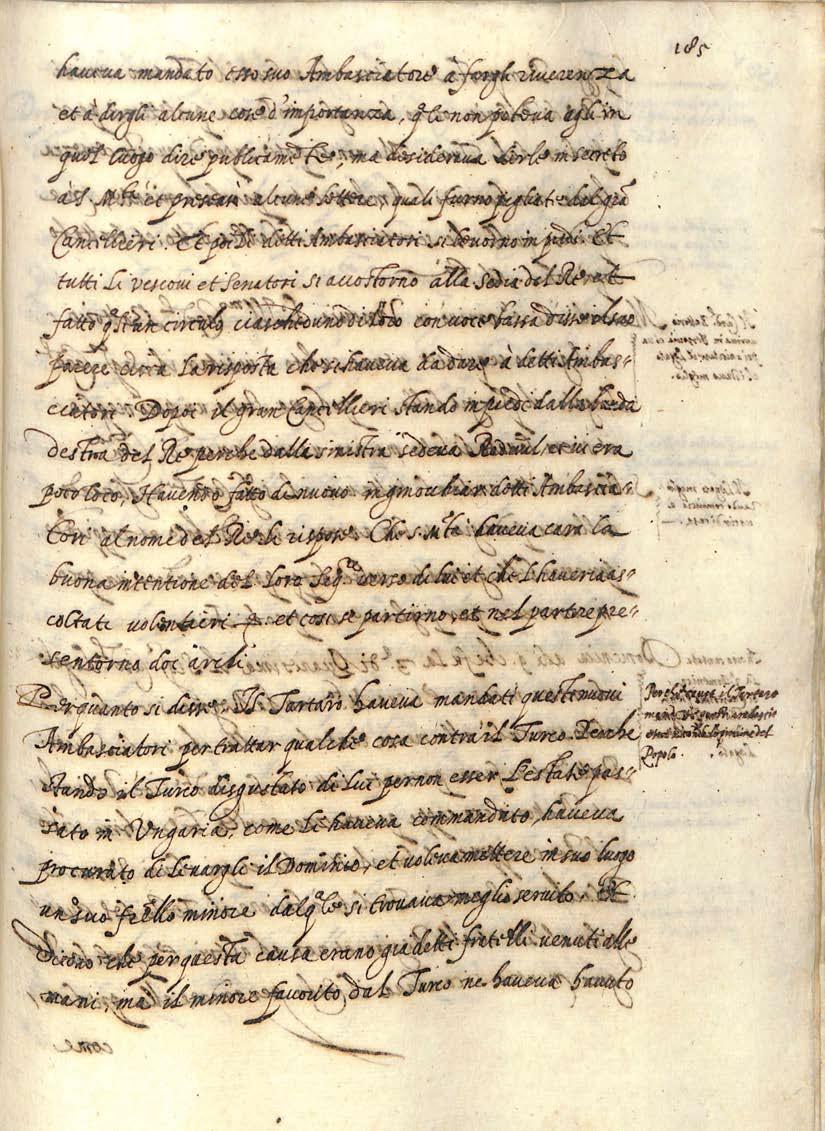 185
haveva mandato esso suo Ambasciatore à fargli riverenza
et à dirgli alcune cose d'importanza, q̃le non poteva egli in
quel luogo dire publicamẽte, ma desiderava dirle in secreto
à S. Mtà et presentò alcune lettere, quali furno pigliate dal grã
Cancellieri. Et poi detti Ambasciatori si levorno in piedi. Et
tutti li vescovi et Senatori si accostorno alla Sedia del Re et
fatto q̃si un circulo ciascheduno di loro con voce bassa disse il suo
parere circa la risposta che si haveva da dare à detti Ambas-
ciatori. Dopoi il gran Cancellieri stando in piedi dalla banda
destra del Re perche dalla sinistra sedeva et ivi era
poco loco, Havendo fatto di nuovo detti Ambascia-
tori al nome del Re li rispose. Che S. Mtà haveva cara la
buona intentione del loro Sigre verso di lui et che l'haveria as-
coltati volentieri et cosi se partirno, et nel partire pre-
sentorno doi archi.
Per quanto si disse Il Tartaro haveva mandati questi nuovi
Ambasciatori per trattar qualche cosa contra il Turco. Peroche
stando il Turco disgustato di lui per non esser l'estate pas-
sato in Ungaria, come li haveva commandato, haveva
procurato di levargli il Dominio, et voleva mettere in suo luogo
un suo frẽllo minore dal q̃le si trovava meglio servito. Et
dicono che per questa causa erano gia detti fratelli venuti alle
mani, ma il minore favorito dal Turco ne haveva havuto
Per che causa il Tartaro
mandasse questi ambascia
tori secondo l'opinione del
Popolo.